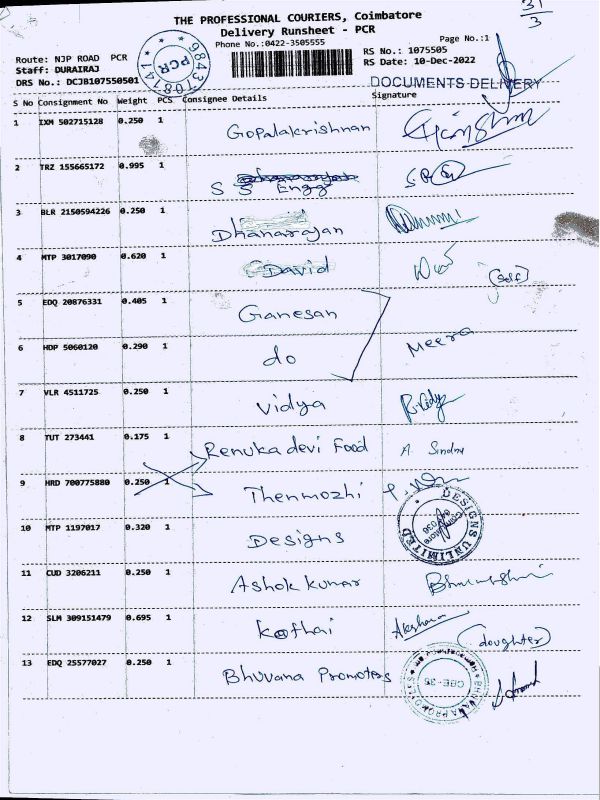 31/3
THE PROFESSIONAL COURIERS, Coimbatore
Delivery Runsheet - PCR
Phone No.:0422-3505555
Page No.:1
Route: NJP ROAD PCR
RS No.: 1075505
Staff: DURAIRAJ
RS Date: 10-Dec-2022
DRS No.: DCJB107550501
PCR
DOCUMENTS DELIVERY
S No Consignment No Weight PCS Consignee Details Signature
1 IXM 502715128 0.250 1 Gopalakrishnan
2 TRZ 155665172 0.995 1 S S Engg
3 BLR 2150594226 0.250 1 Dhanarajan
4 MTP 3017090 0.620 1 David (Self)
5 EDQ 20876331 0.405 1 Ganesan
6 HDP 5060120 0.290 1 do Meera
7 VLR 4511725 0.250 1 Vidya
8 TUT 273441 0.175 1 Renuka devi Food A. Sindhu
9 HRD 700775880 0.250 1 Thenmozhi
10 MTP 1197017 0.320 1 Designs
DESIGNS UNLIMITED
11 CUD 3206211 0.250 1 Ashok kumar
12 SLM 309151479 0.695 1 Kothai Akshara (doughter)
13 EDQ 25577027 0.250 1 Bhuvana Promoters
CBE-35